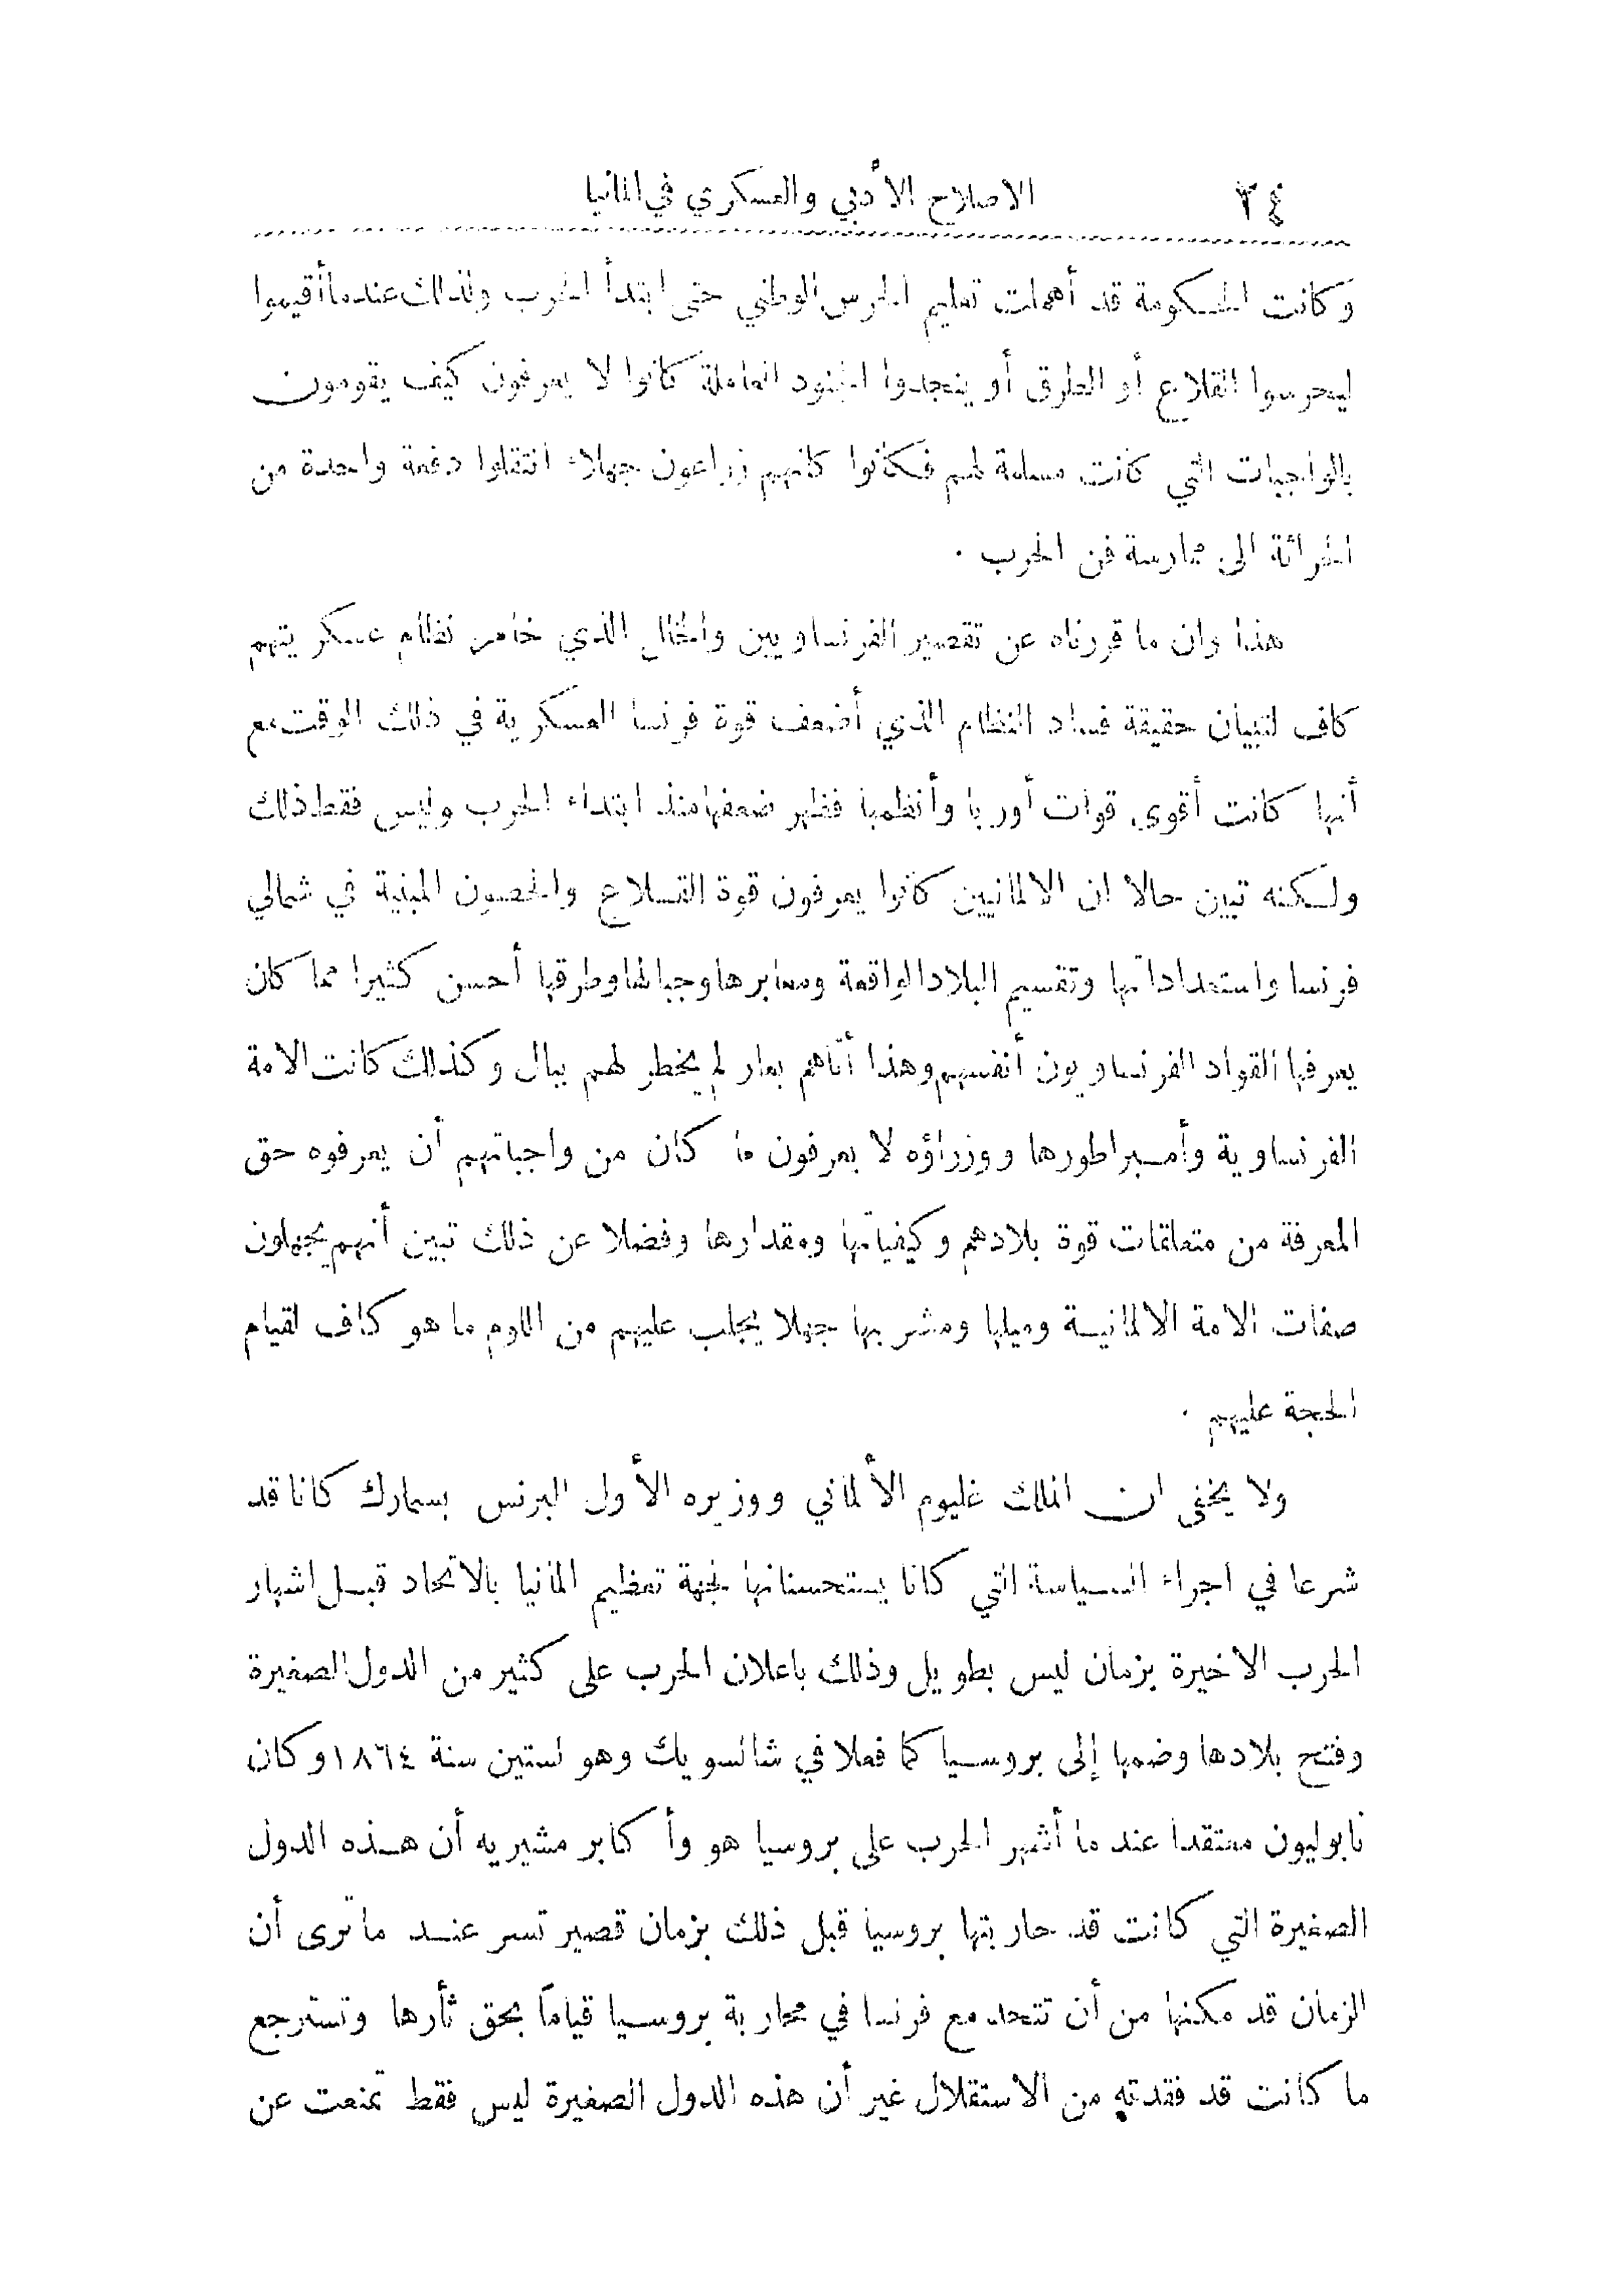 ٣٤ الاصلاح الأدبي والعسكري في المانيا
وكانت الحكومة قد أهملت تعليم الحرس الوطني حتى ابتدأ الحرب ولذلك عندما أقيموا
ليحرسوا القلاع أو الطرق أو ينجدوا الجنود العاملة كانوا لا يعرفون كيف يقومون
بالواجبات التي كانت مسلمة لهم فكانوا كانهم زراعون جهلاء انتقلوا دفعة واحدة من
الحراثة الى ممارسة فن الحرب .
هذا وان ما قررناه عن تقصير الفرنساويين والخلل الذي خامر نظام عسكريتهم
كاف لتبيان حقيقة فساد النظام الذي أضعف قوة فرنسا العسكرية في ذلك الوقت مع
أنها كانت أقوى قوات أوربا وأنظمها فظهر ضعفها منذ ابتداء الحرب وليس فقط ذلك
ولكنه تبين حالا ان الالمانيين كانوا يعرفون قوة القلاع والحصون المبنية في شمالي
فرنسا واستعداداتها وتقسيم البلاد الواقعة ومعابرها وجبالها وطرقها أحسن كثيرا مما كان
يعرفها القواد الفرنساويون أنفسهم وهذا أتاهم بعار لم يخطر لهم ببال وكذلك كانت الامة
الفرنساوية وأمبراطورها ووزراؤه لا يعرفون ما كان من واجباتهم أن يعرفوه حق
المعرفة من متعلقات قوة بلادهم وكيفياتها ومقدارها وفضلا عن ذلك تبين أنهم يجهلون
صفات الامة الالمانية وميلها ومشربها جهلا يجلب عليهم من اللوم ما هو كاف لقيام
الحجة عليهم .
ولا يخفى ان الملك غليوم الألماني ووزيره الأول البرنس بسمارك كانا قد
شرعا في اجراء السياسة التي كانا يستحسنانها لجهة تعظيم المانيا بالاتحاد قبل اشهار
الحرب الاخيرة بزمان ليس بطويل وذلك باعلان الحرب على كثير من الدول الصغيرة
وفتح بلادها وضمها إلى بروسيا كما فعلا في شالسويك وهولستين سنة ١٨٦٤ وكان
نابوليون معتقدا عند ما أشهر الحرب على بروسيا هو وأكابر مشيريه أن هذه الدول
الصغيرة التي كانت قد حاربتها بروسيا قبل ذلك بزمان قصير تسر عند ما ترى أن
الزمان قد مكنها من أن تتحد مع فرنسا في محاربة بروسيا قياماً بحق ثأرها وتسترجع
ما كانت قد فقدته من الاستقلال غير أن هذه الدول الصغيرة ليس فقط تمنعت عن